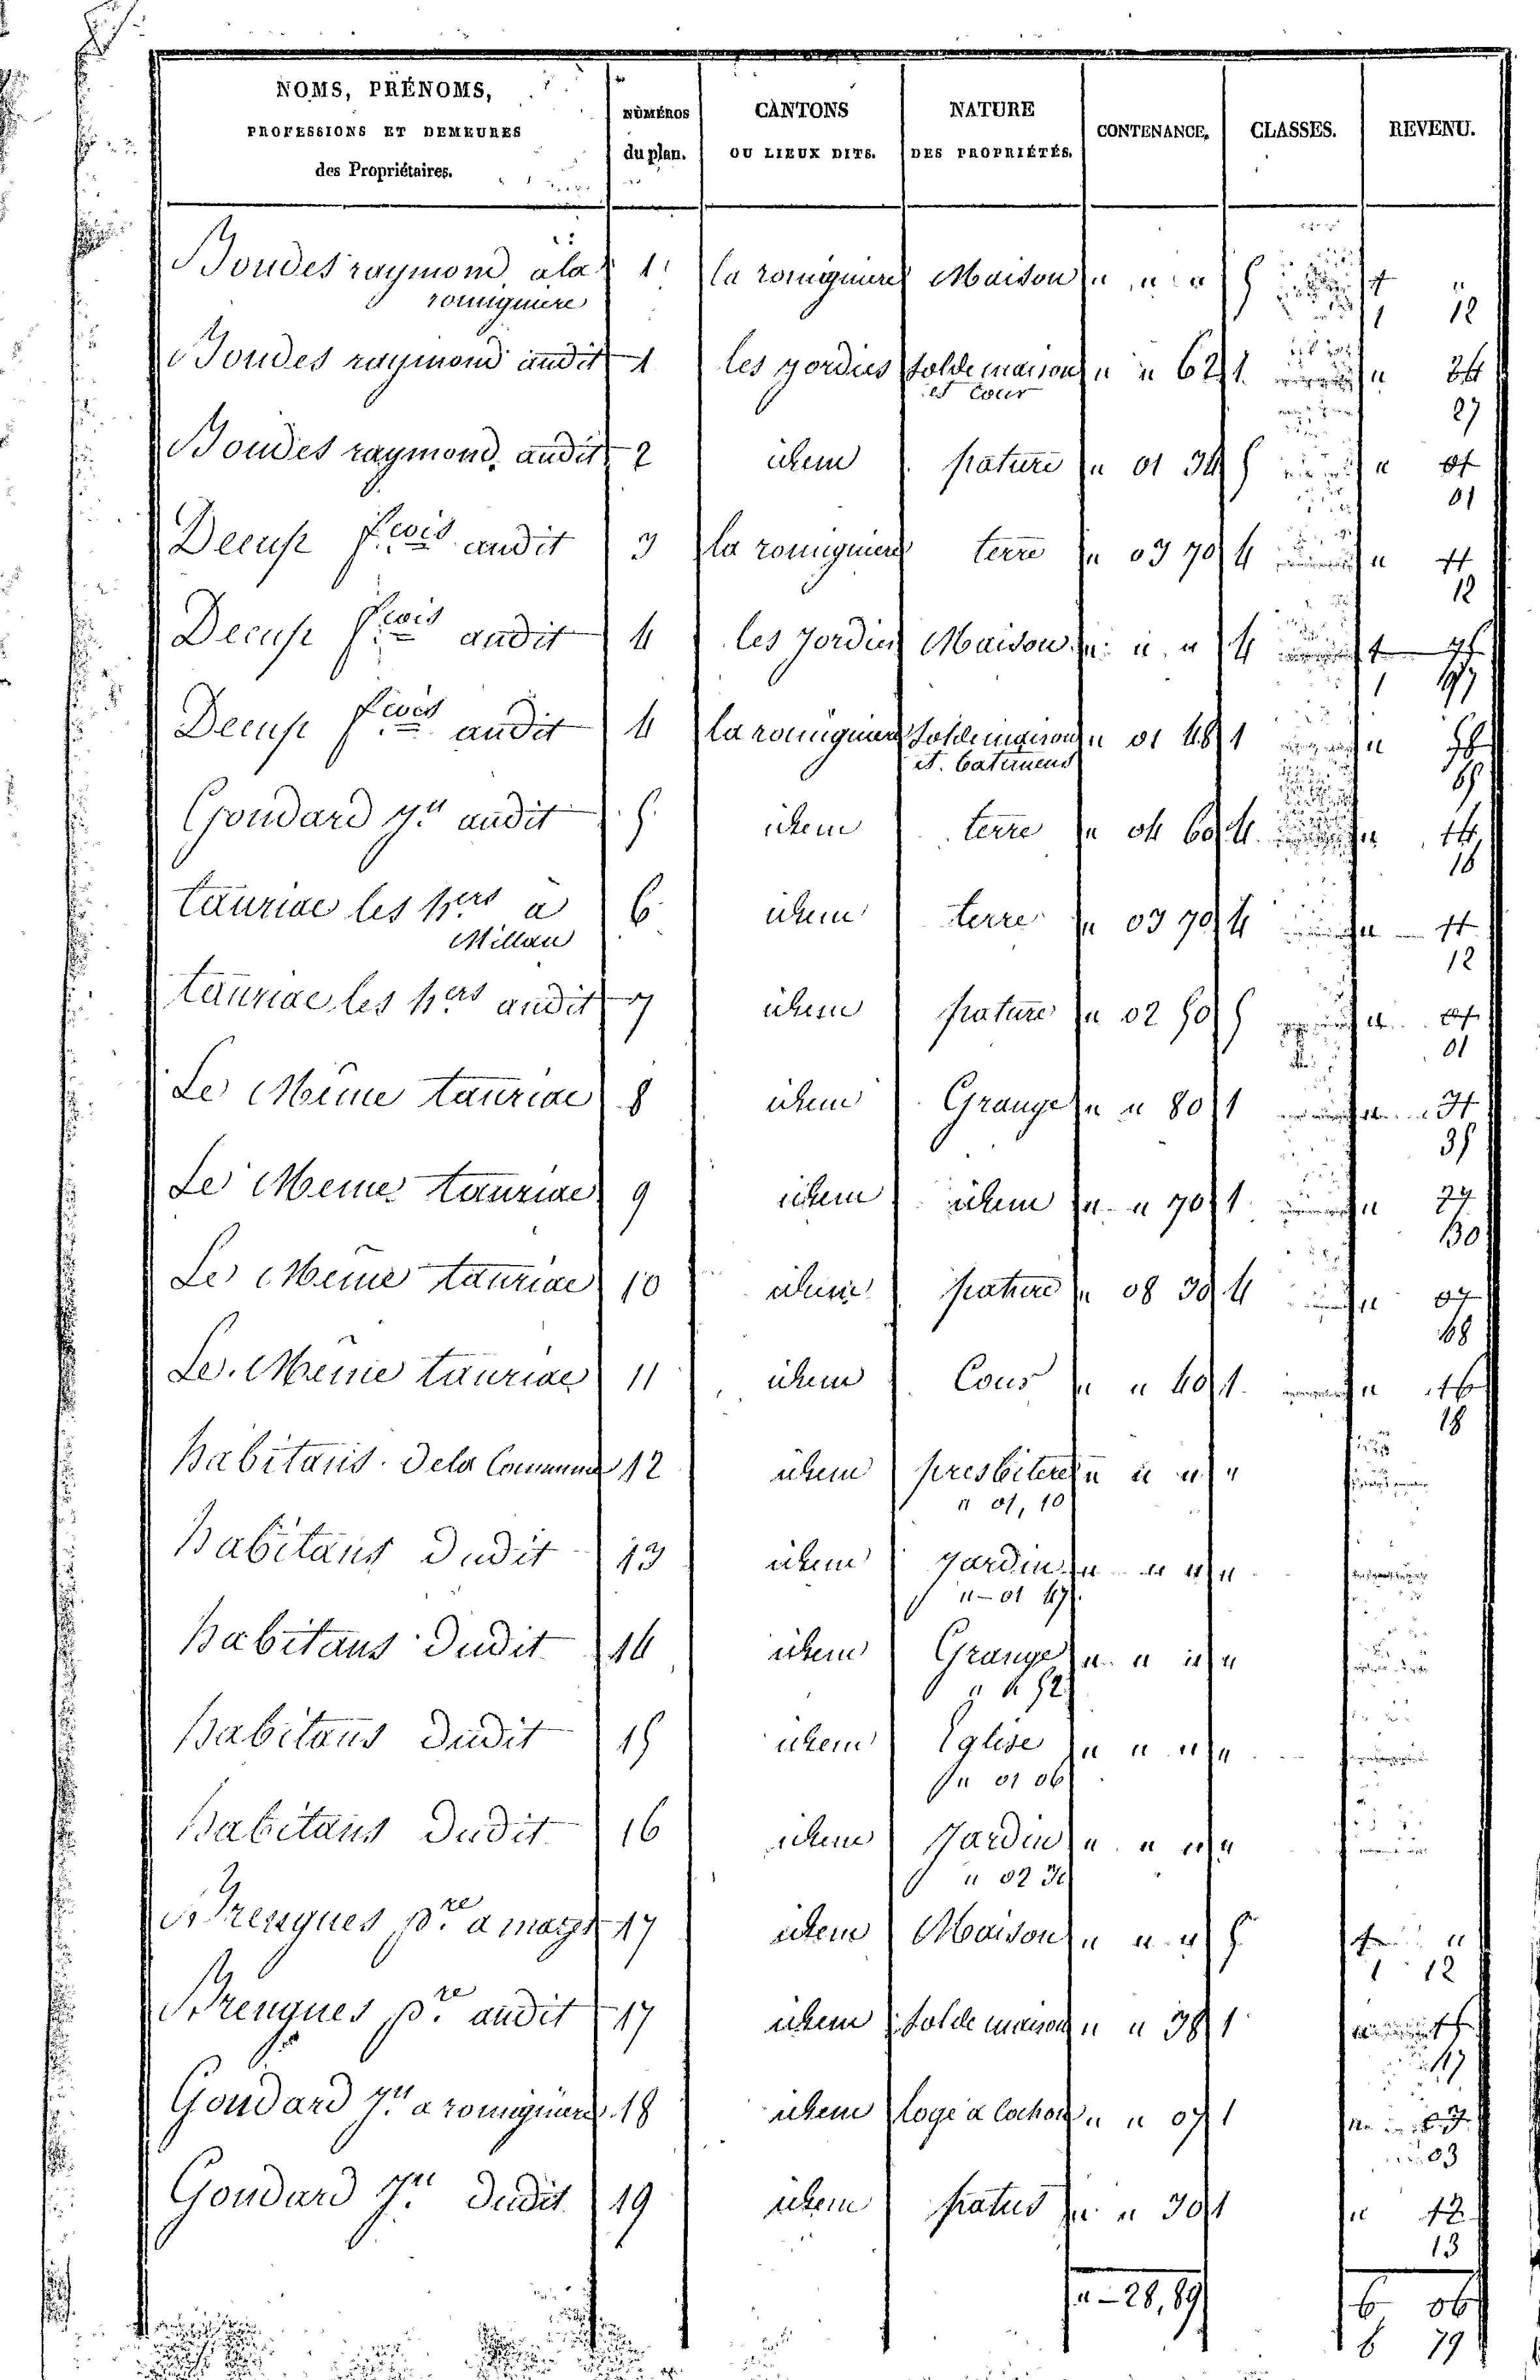 NOMS, PRÉNOMS,
PROFESSIONS ET DEMEURES
des Propriétaires.
NUMÉROS
du plan.
CANTONS
OU LIEUX DITS.
NATURE
DES PROPRIÉTÉS.
CONTENANCE.
CLASSES.
REVENU.
Boudes raymond a la 1 la romiguiere Maison " " " 5 1 "
romiguiere 1 12
Boudes raymond audit 1 les jordies sol de maison " " 62 1 " 24
et Cour 27
Boudes raymond audit 2 idem pature " 01 34 5 " 01
01
Decup f.cois audit 3 la romiguiere terre " 03 70 4 " 11
12
Decup f.cois audit 4 les jordies Maison " " " 4 1 75
1 97
Decup f.cois audit 4 la romiguiere sol de maison " 01 48 1 " 58
et batimens 65
Goudard jn audit 5 idem terre " 04 60 4 " 14
16
tauriac les hers a 6 idem terre " 03 70 4 " 11
Millau 12
tauriac les hers audit 7 idem pature " 02 50 5 " 01
01
Le Même tauriac 8 idem Grange " " 80 1 " 31
35
Le Meme tauriac 9 idem idem " " 70 1 " 27
30
Le Meme tauriac 10 idem pature " 08 30 4 " 07
08
Le Meme tauriac 11 idem Cour " " 40 1 " 16
18
habitans De la Commune 12 idem presbitere " " " "
" 01, 10
habitans Dudit 13 idem jardin " " " "
" 01 47
habitans Dudit 14 idem Grange " " " "
" " 52
habitans Dudit 15 idem Eglise " " " "
" 01 06
habitans Dudit 16 idem jardin " " " "
" 02 34
Brengues p.re a 17 idem Maison " " " 5 1 "
1 12
Brengues p.re audit 17 idem sol de maison " " 38 1 15
17
Goudard jn a romiguiere 18 idem loge a Cochon " " 07 1 " 03
03
Goudard jn Dudit 19 idem patus " " 30 1 " 12
13
" - 28, 89 6 06
6 79